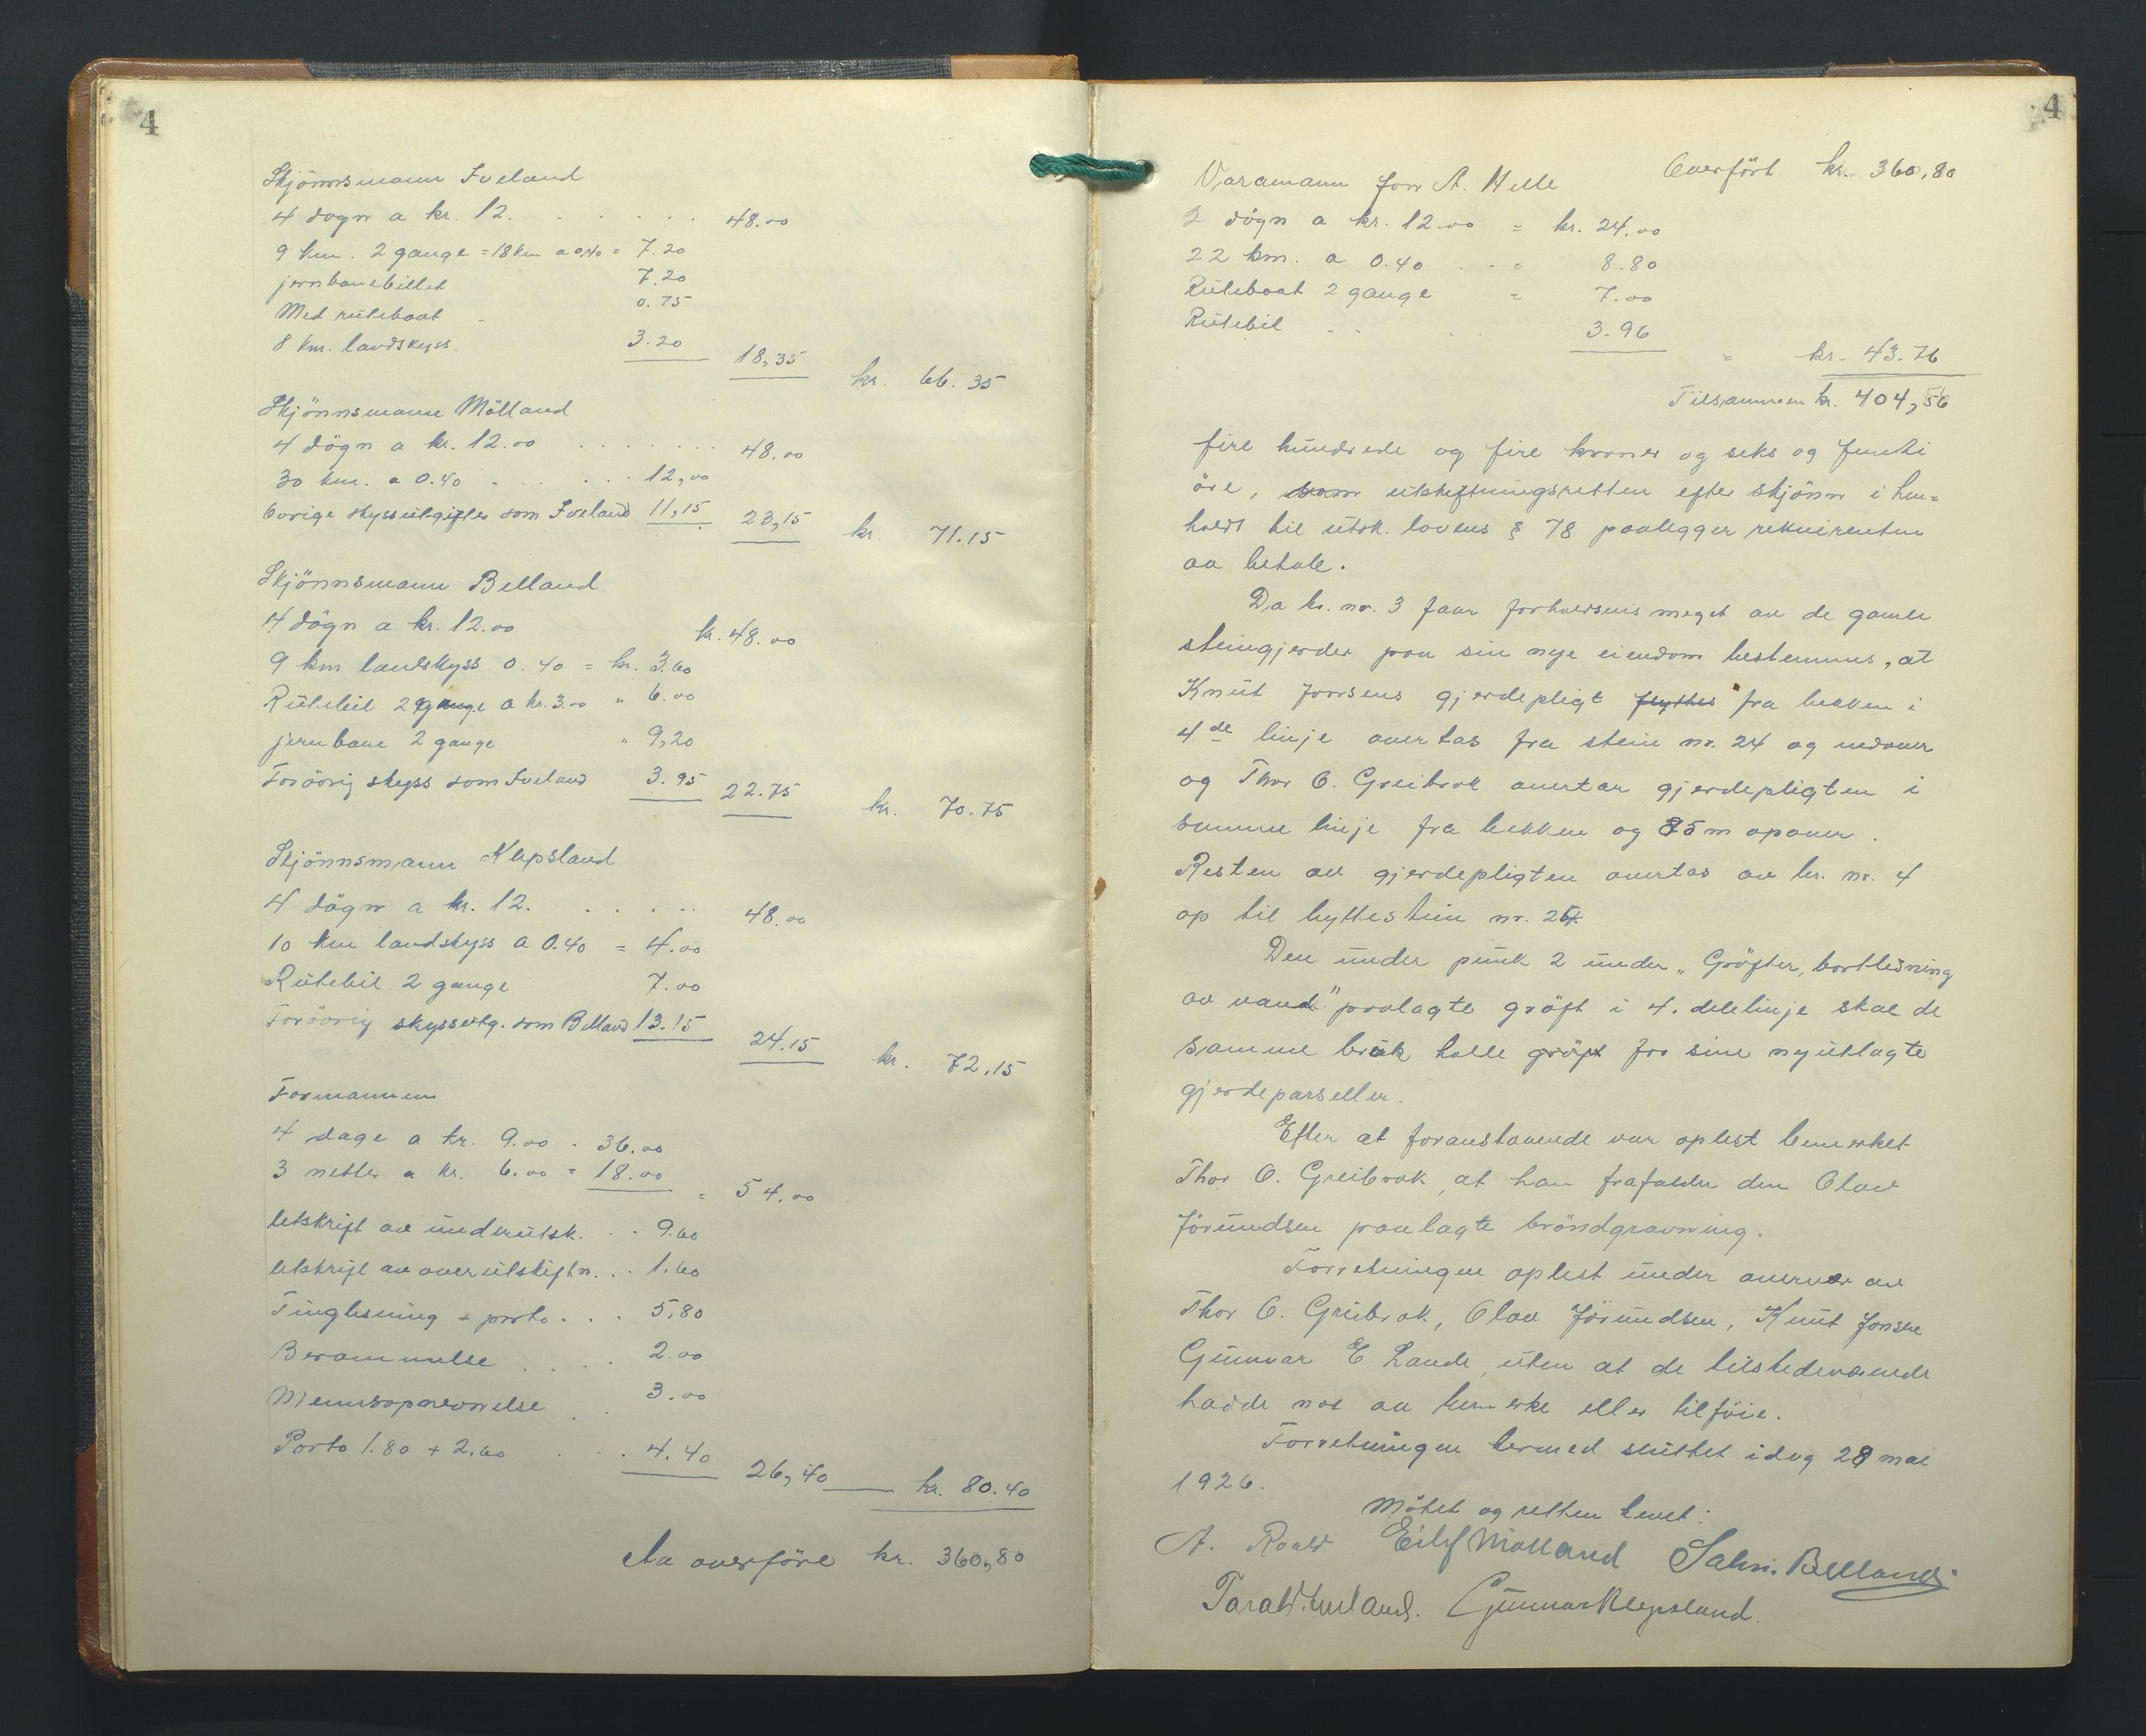 4
Skjønnsmann Iveland
4 døgn a kr. 12. . . . . . 48.00
9 km. 2 gange = 18 km a 0.40 = 7.20
jernbanebillet 7.20
Med rutebaat - 0.75
8 km. landskyss. 3.20 18,35 kr. 66.35
Skjönnsmann Mölland
4 dögn a kr. 12.00 . . . . . . . 48.00
30 km. a 0.40 . . . . . 12,00
Övrige skyssutgifter som Iveland 11,15 23,15 kr. 71.15
Skjönnsmann Belland
4 dögn a kr. 12.00 kr. 48.00
9 km landskyss 0.40 = kr. 3.60
Rutebil 2 gange a kr. 3.00 " 6.00
jernbane 2 gange " 9,20
Forövrig skyss som Iveland 3.95 22.75 kr. 70.75
Skjönnsmann Klepsland
4 dögn a kr. 12. . . . . . 48.00
10 km landskyss a 0.40 = 4.00
Rutebil 2 gange 7.00
Forövrig skyssutg. som Belland 13.15 24.15 kr. 72,15
Formannen
4 dage a kr. 9.00 . 36.00
3 netter a kr. 6.00 = 18.00 = 54.00
Utskrift av underutsk. . . 9.60
Utskrift av overutskiftn. . . 1.60
Tinglesning + porto . . . 5,80
Berammelse . . . . 2.00
Mennsopnevnelse . 3.00
Porto 1.80 + 2.60 . . . 4.40 26,40 kr. 80.40
Aa overföre kr. 360,80
4
Overfört kr. 360,80
Varamann Jon A. Helle
2 dögn a kr. 12.00 = kr. 24.00
22 km. a 0.40 . . = 8.80
Rutebaat 2 gange = 7.00
Rutebil . . . 3.96
= kr. 43.76
Tilsammen kr. 404,56
fire hundrede og fire kroner og seks og femti
öre, som utskiftningsretten efter skjönn i hen=
hold til utsk. lovens § 78 paalegger rekvirenten
aa betale.
Da br. nr. 3 faar forholdsvis meget av de gamle
steingjerder paa sin nye eiendom bestemmes, at
Knut Jonsens gjerdepligt flyttes fra bekken i
4de linje overtas fra stein nr. 24 og nedover
og Thor O. Greibrok overtar gjerdepligten i
samme linje fra bekken og 85 m opover.
Resten av gjerdepligten overtas av br. nr. 4
op til byttestein nr. 24.
Den under punk 2 under "Gröfter, bortledning
av vand" paalagte gröft i 4. delelinje skal de
samme bruk holde gröft for sine nyutlagte
gjerdeparseller.
Efter at foranstaaende var oplest bemerket
Thor O. Greibrok, at han frafalder den Olav
Jörundsen paalagte bröndgravning.
Forretningen oplest under overvær av
Thor O. Greibrok, Olav Jörundsen, Knut Jonsen
Gunnar E Lande, uten at de tilstedeværende
hadde noe aa bemerke eller tilföie.
Forretningen hermed sluttet idag 28 mai
1926.
Mötet og retten hevet:
A. Roald Eilef Mölland Salve. Belland
Tarald Iveland. Gunnar Klepsland.